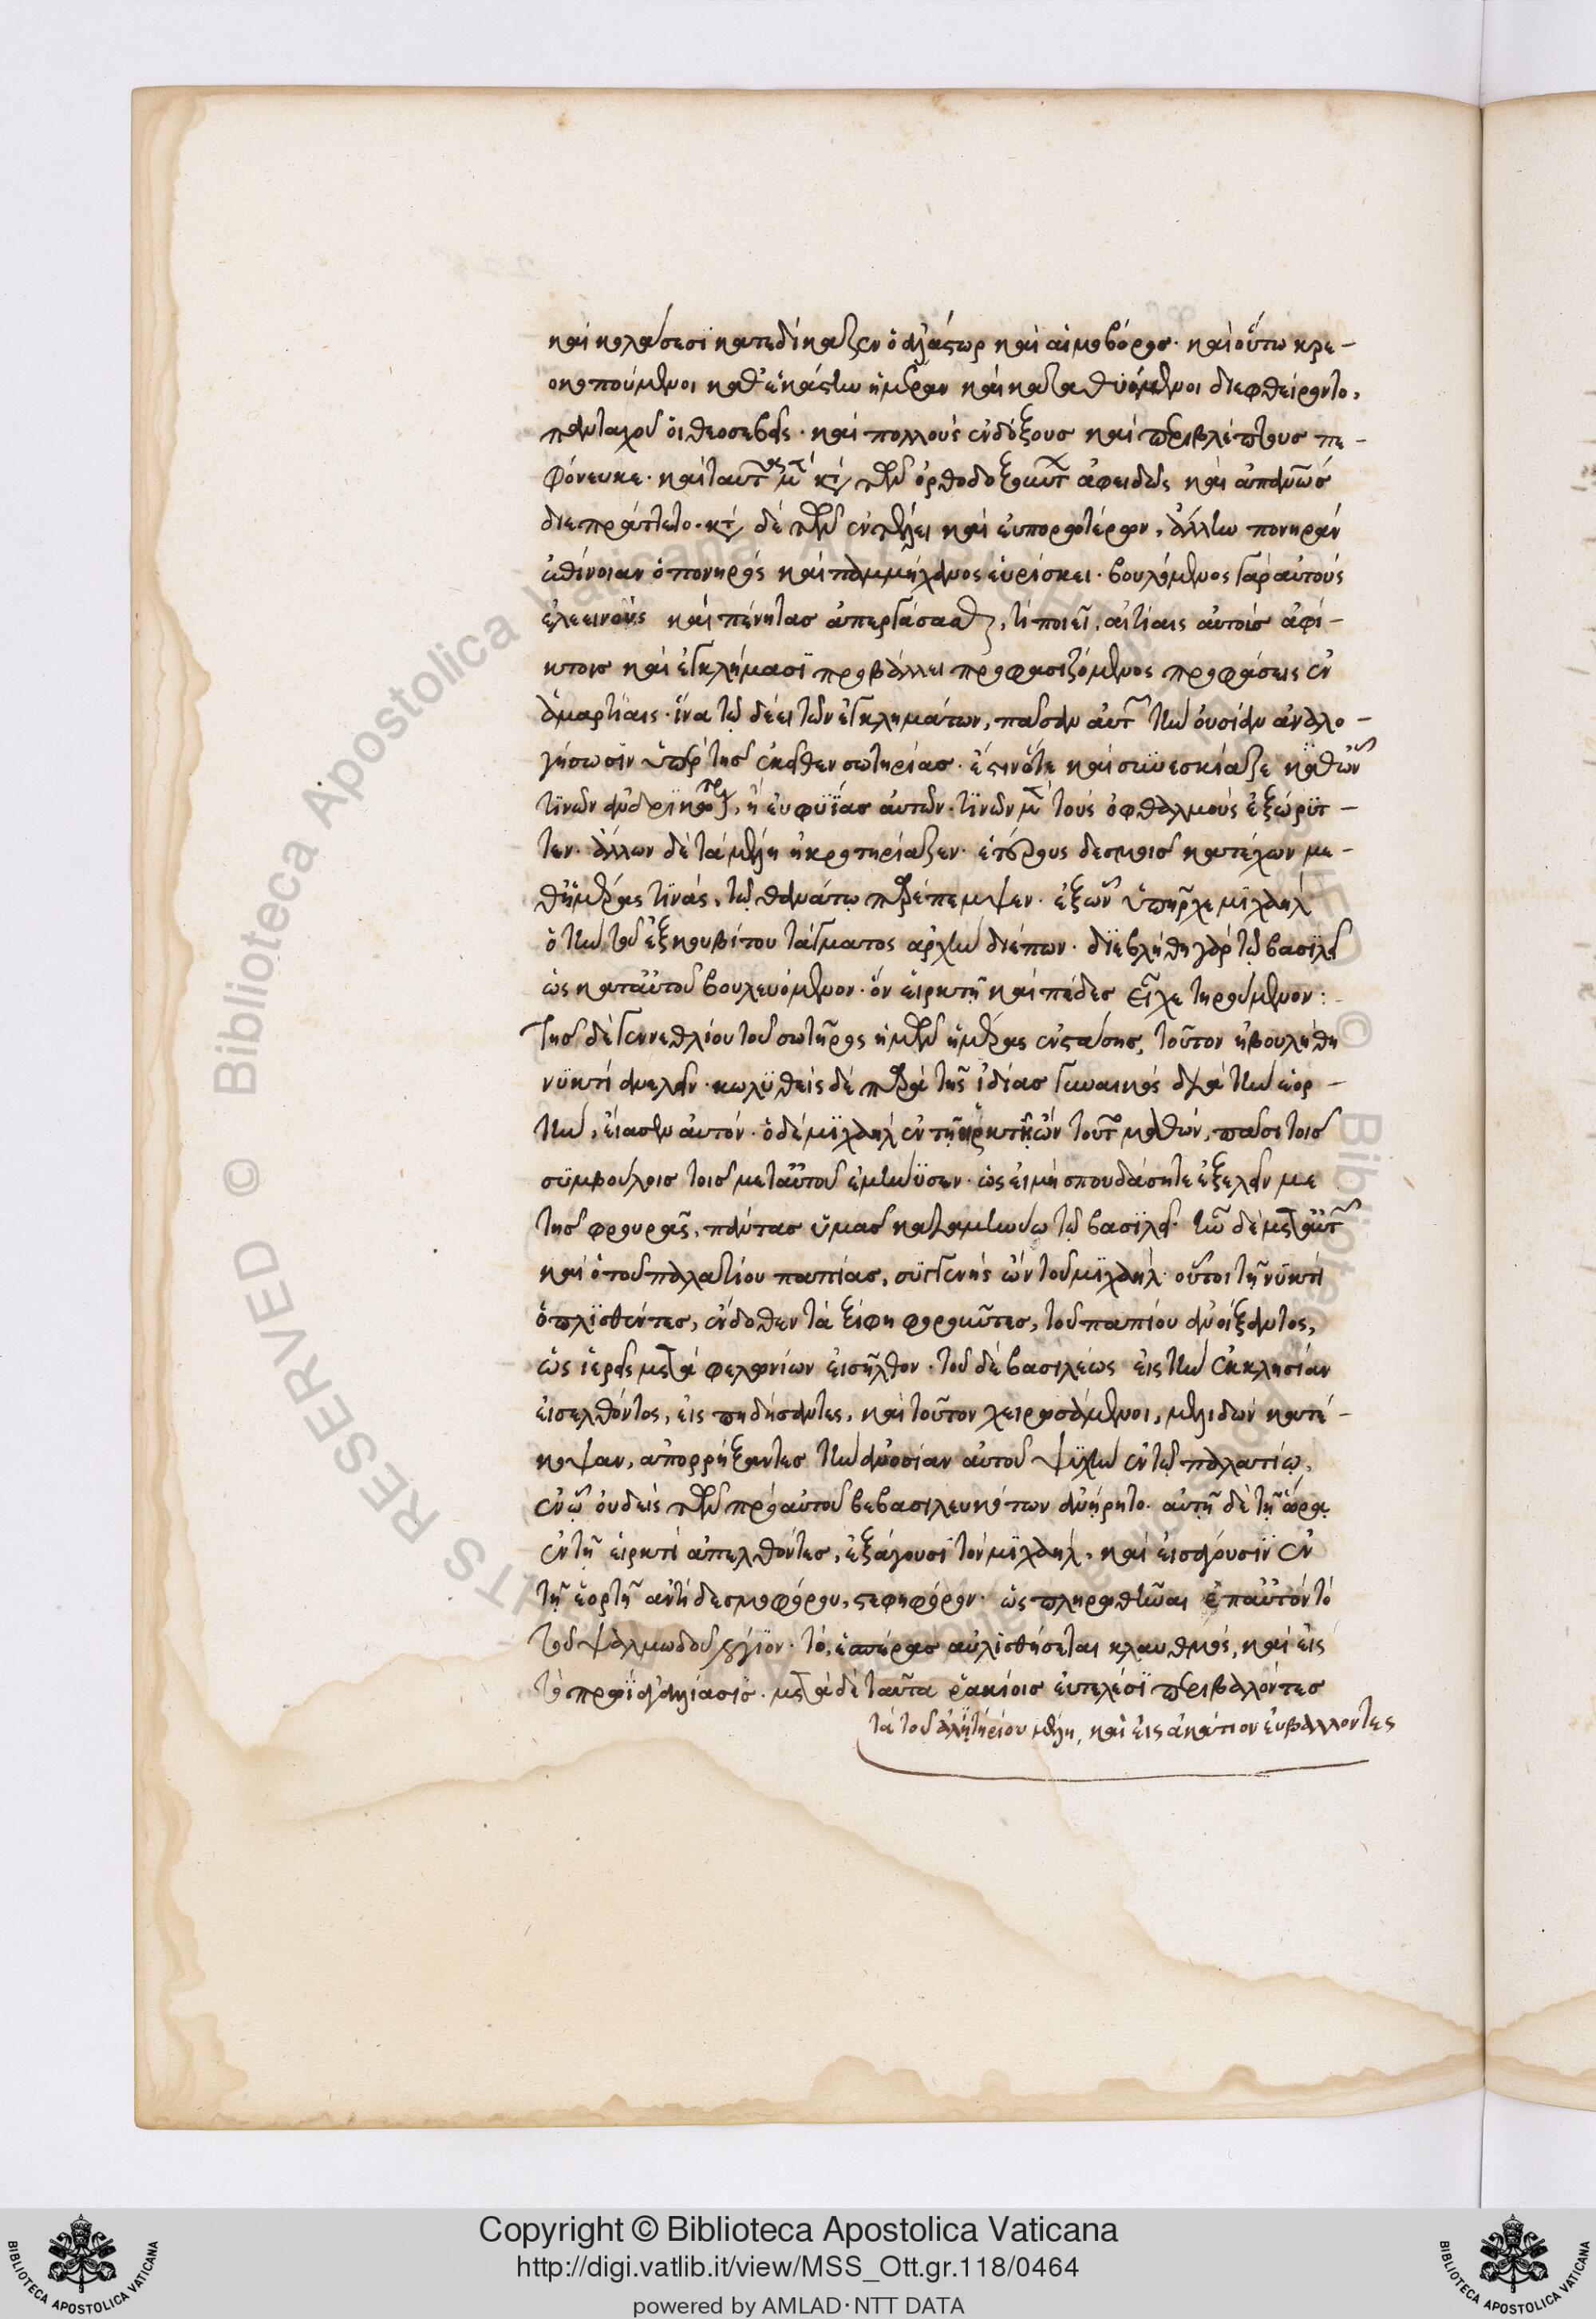 καὶ κολάσεσϊ κατεδίκαζεν ὁ ἀλάστωρ καὶ αἱμοβόρος· καὶ οὕτω κρε-
οκοπούμενοι καθ' ἑκάστην ἡμέραν καὶ καταθϋόμενοι διεφθείροντο,
πανταχοῦ οἱ θεοσεβεῖς· καὶ πολλοὺς ἐνδόξους καὶ περιβλέπτους πε-
φόνευκε· καὶ ταῦτ μ κτ τῶν ὀρθοδοξούντ ἀφειδῶς καὶ ἀπανῶς
διεπράττετο· κτ δὲ τῶν ἐν τέλει καὶ εὐπορωτέρων, ἄλλην πονηρὰν
ἐπίνοιαν ὁ πονηρὸς καὶ παμμήχανος εὑρίσκει· βουλόμενος γὰρ αὐτοὺς
ἐλεεινοὺς καὶ πένητας ἀπεργάσασθ, τί ποιεῖ, αἰτίαις αὐτοῖς ἀφύ-
κτοις καὶ ἐγκλήμασϊ προβάλλει προφασιζόμενος προφάσεις ἐν
ἁμαρτίαις· ἵνα τῷ δέει τῶν ἐγκλημάτων, πᾶσαν αὐτ τὴν οὐσίαν ἀναλο-
γήσωσϊν ὑπὲρ τῆς ἐκεῖθεν σωτηρίας· ἔστιν ὅτε καὶ συνεσκίαζε
τϊνῶν ἀνδρϊκ, ἢ εὐφυΐας αὐτῶν· τϊνῶν μ τοὺς ὀφθαλμοὺς ἐξώρϋτ-
τεν· ἄλλων δὲ τὰ μέλη ἠκρωτηρίαζεν· ἑτέρους δεσμοῖς κατέχων με-
θ' ἡμέρας τϊνάς, τῷ θανάτῳ παρέπεμψεν· ἐξ ὧν ὑπῆρχε μϊχαὴλ
ὁ τὴν τοῦ ἐξκουβίτου τάγματος ἀρχὴν διέπων· δϊεβλήθη γὰρ τῷ βασϊλεῖ
ὡς κατ' αὐτοῦ βουλευόμενον· ὃν εἱρκτῇ καὶ πέδες εἶχε τηρούμενον:
Τῆς δὲ γεννεθλίου τοῦ σωτῆρος ἡμῶν ἡμέρας ἐνστάσης, τοῦτον ἠβουλήθη
νϋκτὶ ἀνελεῖν· κωλϋθεὶς δὲ παρὰ τῆς ἰδίας γυναικὸς διὰ τὴν ἑορ-
τὴν, εἴασεν αὐτόν· ὁ δὲ μϊχαὴλ ἐν τῇ εἱρκτῇ ὢν τοῦτ μαθών, πᾶσι τοῖς
σϋμβούλοις τοῖς μετ' αὐτοῦ ἐμήνϋσεν· ὡς εἰ μὴ σπουδάσητε ἐξελεῖν με
τῆς φρουρᾶς, πάντας ὑμᾶς καταμηνύω τῷ βασϊλεῖ· ἦν δὲ μετ' αὐτ
καὶ ὁ τοῦ παλατίου παπίας, σϋγγενὴς ὢν τοῦ μϊχαήλ· οὗτοι τῇ νϋκτὶ
ὁπλϊσθέντες, ἔνδοθεν τὰ ξίφη φοροῦντες, τοῦ παπίου ἀνοίξαντος,
ὡς ἱερεῖς μετὰ φελωνίων εἰσῆλθον· τοῦ δὲ βασιλέως εἰς τὴν ἐκκλησίαν
εἰσελθόντος, εἰς πηδήσαντες, καὶ τοῦτον χειρωσάμενοι, μεληδὼν κατέ-
κοψαν, ἀπορρήξαντες τὴν ἀνοσίαν αὐτοῦ ψϋχὴν ἐν τῷ παλατίῳ,
ἐν ᾧ οὐδεὶς τῶν πρὸ αὐτοῦ βεβασιλευκότων ἀνῄρητο· αὐτῇ δὲ τῇ ὥρᾳ
ἐν τῇ εἱρκτὶ ἀπελθόντες, ἐξάγουσϊ τὸν μϊχαὴλ, καὶ εἰσάγουσϊν ἐν
τῇ ἑορτῇ ἀντὶ δεσμοφόρου, στεφηφόρον· ὡς πληρωθῆναι ἐπ' αὐτὸν τὸ
τοῦ ψαλμωδοῦ λόγϊον· τὸ, ἑσπέρας αὐλϊσθήσεται κλαυθμός, καὶ εἰς
τὸ πρωῒ ἀγαλίασϊς· μετὰ δὲ ταῦτα ῥακίοις εὐτελέσϊ περιβαλόντες
τὰ τοῦ ἀλητήριου μέλη, καὶ εἰς ἀκάτιον ἐμβάλλοντες
Copyright © Biblioteca Apostolica Vaticana
http://digi.vatlib.it/view/MSS_Ott.gr.118/0464
powered by AMLAD·NTT DATA